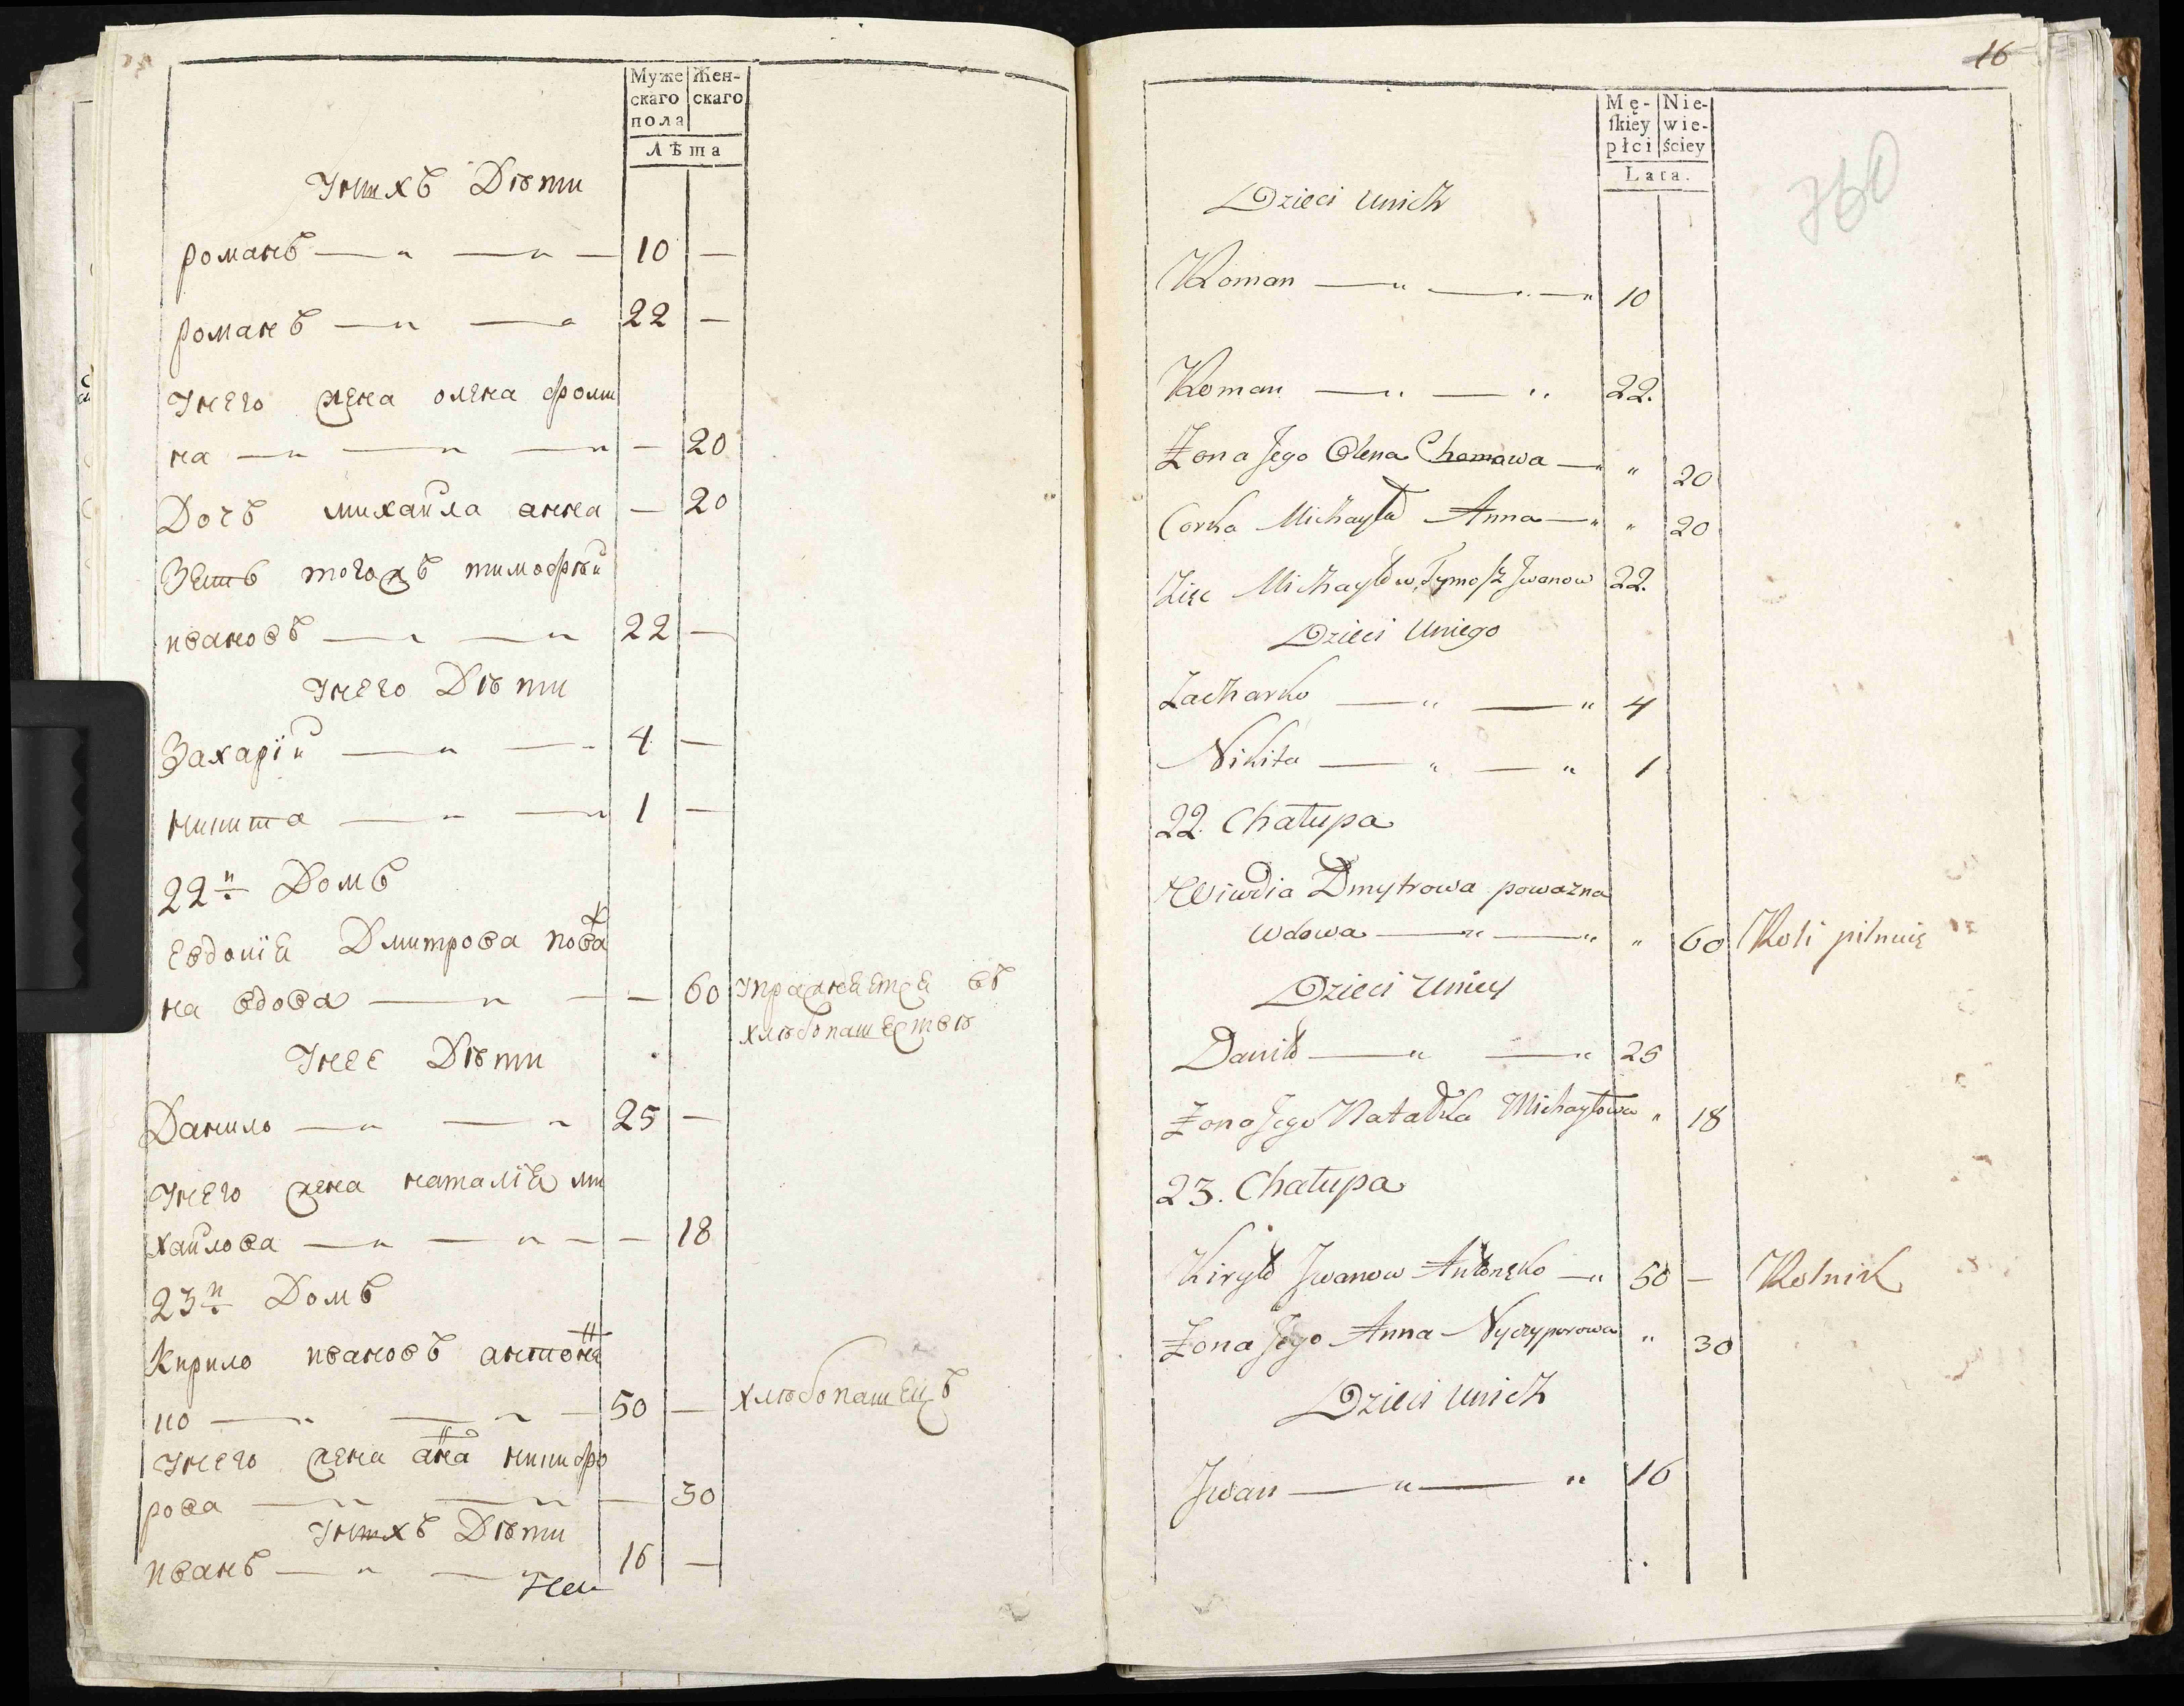 Муже
скаго
пола
Жен-
скаго
Лѣта
Унихъ Дѣти
романъ — „ — „ — 10 —
романъ — „ — „ 22 —
Унего жена олена фоми
на — „ — „ — „ — 20
Дочь михайла анна — 20
Зеть тогожъ тимофѣй
ивановъ — „ — „ 22 —
Унего Дѣти
Захарій — „ — „ 4 —
никита — „ — „ 1 —
22й Домъ
Евдокія Дмитрова поважа
на вдова — „ — — 60 упражняется въ
хлѣбопашествѣ
Унее Дѣти
Данило — „ — „ 25 —
Унего жена наталія ми
хайлова — „ — „ — — 18
23й Домъ
Кирило ивановъ антоне
ко — „ — „ — 50 — хлѣбопашецъ
Унего жена анна никифо
рова — „ — „ — 30
Унихъ Дѣти
иванъ — „ — „ 16 —
16
Mę-
ſkiey
płci
Nie-
wie-
ściey
Lata.
760
Dzieci Unich
Roman — „ — „ — „ 10
Roman — „ — „ 22.
Żona Jego Olena Chomowa — „ „ 20
Corka Michayła Anna — „ „ 20
Zięc Michayłow, Tymosz Jwanow 22.
Dzieci Uniego
Zacharko — „ — „ 4
Nikita — „ — „ 1
22. Chałupa
Wiwdia Dmytrowa powazna
wdowa — „ — „ „ 60 Roli pilnuię
Dzieci Uniey
Daniło — „ — „ 25
Żona Jego Natalka Michayłowa „ 18
23. Chałupa
Kiryło Jwanow Antonęko — „ 50 — Rolnik
Żona Jego Anna Nyczyporowa „ 30
Dzieci Unich
Jwan — „ — „ 16